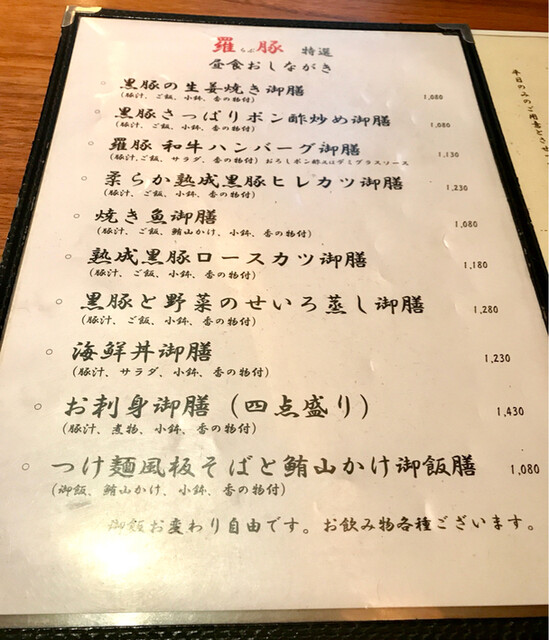 羅豚 特選
らぶ
昼食おしながき
○ 黒豚の生姜焼き御膳 1,080
(豚汁、ご飯、小鉢、香の物付)
○ 黒豚さっぱりポン酢炒め御膳 1,080
(豚汁、ご飯、小鉢、香の物付)
○ 羅豚 和牛ハンバーグ御膳 1,130
(豚汁、ご飯、サラダ、香の物付) おろしポン酢又はデミグラスソース
○ 柔らか熟成黒豚ヒレカツ御膳 1,230
(豚汁、ご飯、小鉢、香の物付)
○ 焼き魚御膳 1,080
(豚汁、ご飯、鮪山かけ、小鉢、香の物付)
○ 熟成黒豚ロースカツ御膳 1,180
(豚汁、ご飯、小鉢、香の物付)
○ 黒豚と野菜のせいろ蒸し御膳 1,280
(豚汁、ご飯、小鉢、香の物付)
○ 海鮮丼御膳 1,230
(豚汁、サラダ、小鉢、香の物付)
○ お刺身御膳(四点盛り) 1,430
(豚汁、煮物、小鉢、香の物付)
○ つけ麺風板そばと鮪山かけ御飯膳 1,080
(御飯、鮪山かけ、小鉢、香の物付)
御飯お変わり自由です。お飲み物各種ございます。
平日のみのご用意とさせ